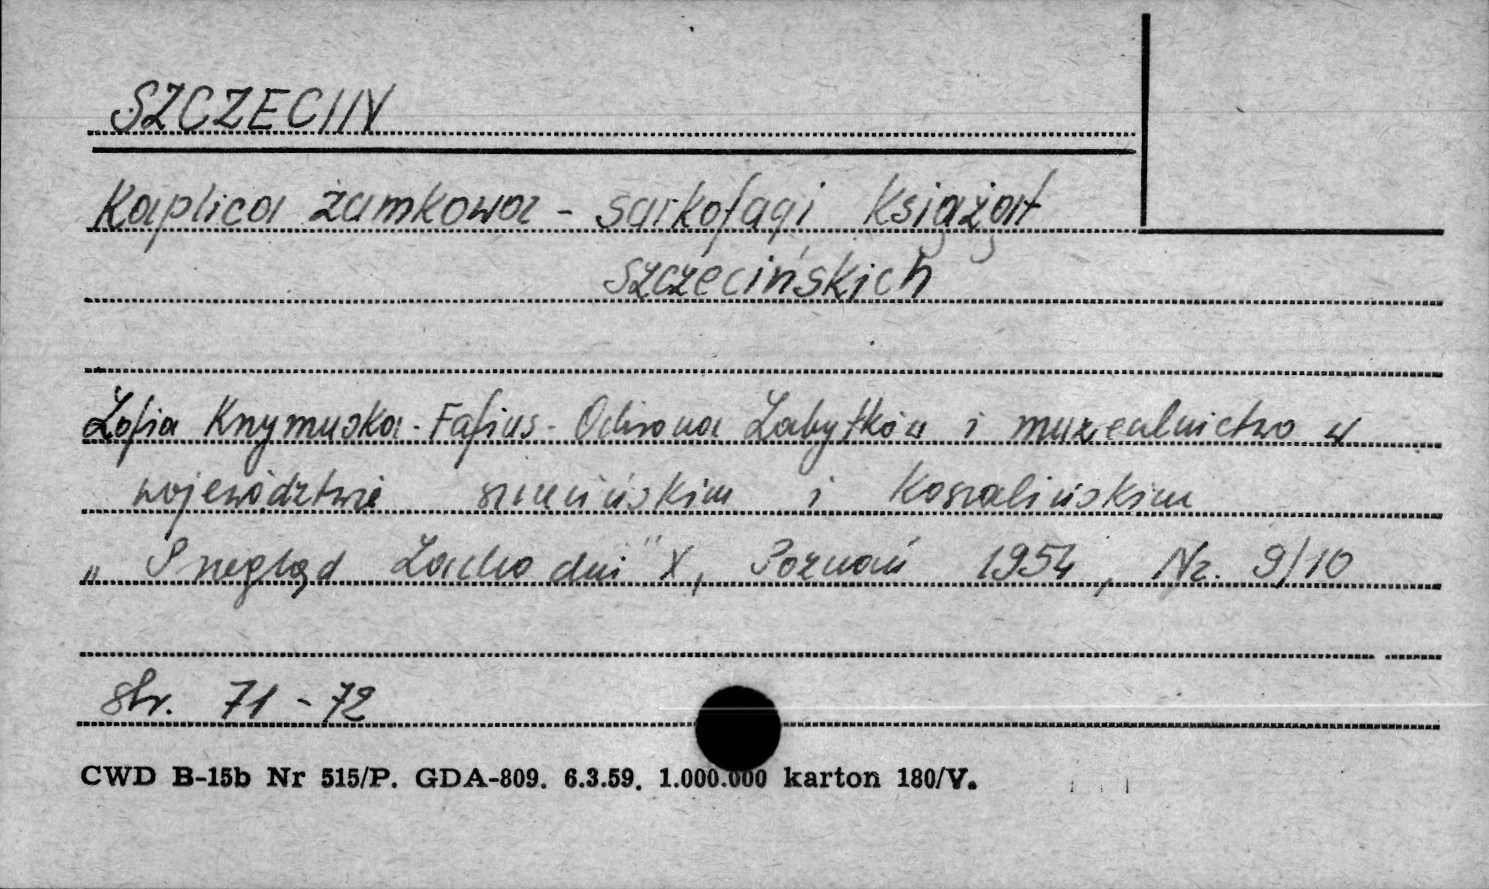 SZCZECIN
Kaplica zamkowa - sarkofagi Książąt
szczecińskich
Zofia Krzymuska-Fafius - Ochrona Zabytków i muzealnictwo w
województwie szczecińskim i Koszalińskim
„Przegląd Zachodni" X, Poznań 1954, Nr. 9/10
str. 71-72
CWD B-15b Nr 515/P. GDA-809. 6.3.59. 1.000.000 karton 180/V.